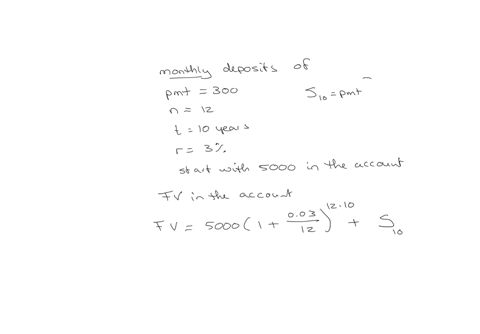 monthly deposits of
pmt = 300
S10 = pmt
n = 12
t = 10 years
r = 3%
start with 5000 in the account
FV in the account
FV = 5000(1 + 0.03/12)^12·10 + S10